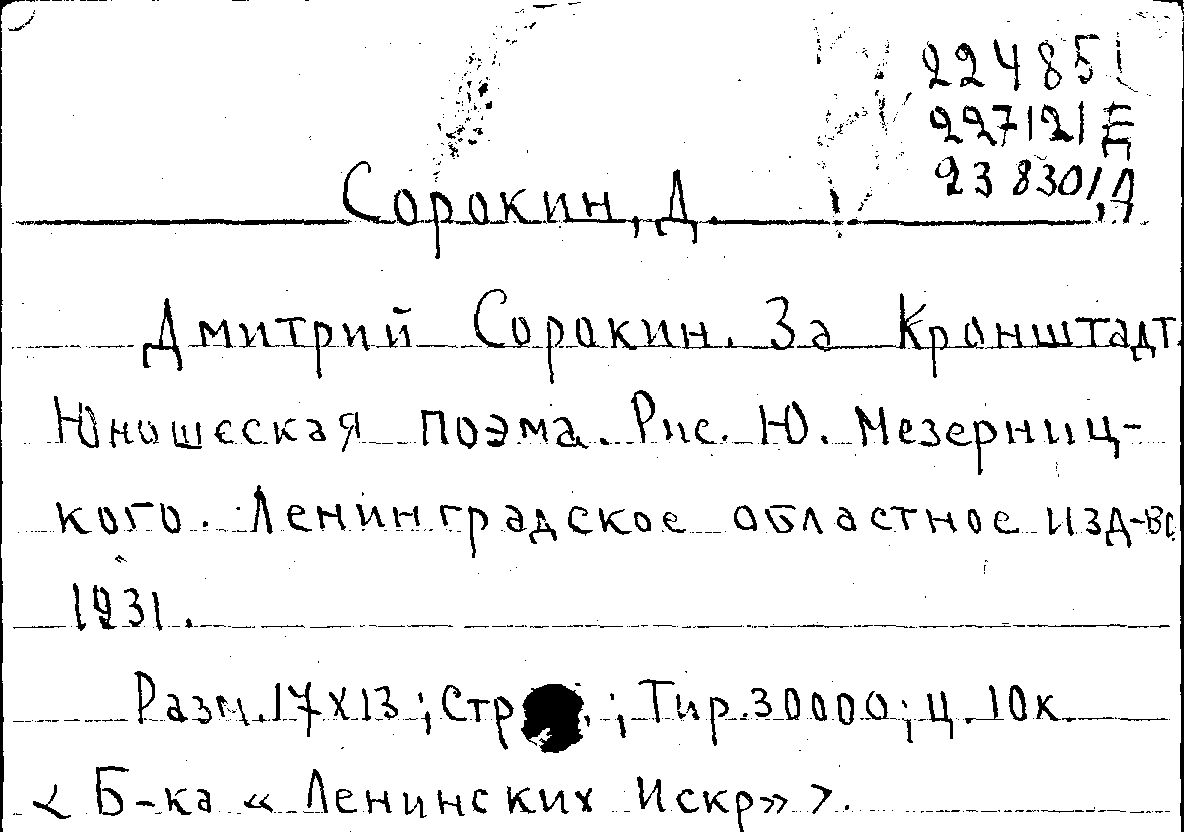 22485
227121 Д
238301, Д
Сорокин, Д.
Дмитрий Сорокин. За Кронштадт.
Юношеская поэма. Рис. Ю. Мезерниц-
кого. Ленинградское областное изд-во
1931.
Разм. 17х13; Стр ; Тир. 30000; ц. 10 к.
< Б-ка « Ленинских Искр» >.